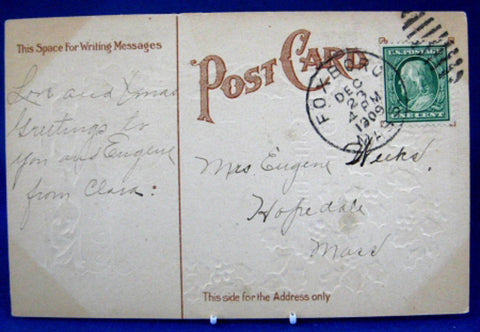 This Space For Writing Messages
POST CARD
Love and Xmas
Greetings to
you and Eugene
from Clara:
FOXBORO
DEC
23
4 PM
1909
MASS
U.S. POSTAGE
ONE CENT
Mrs Eugene Weeks.
Hopedale
Mass
This side for the Address only